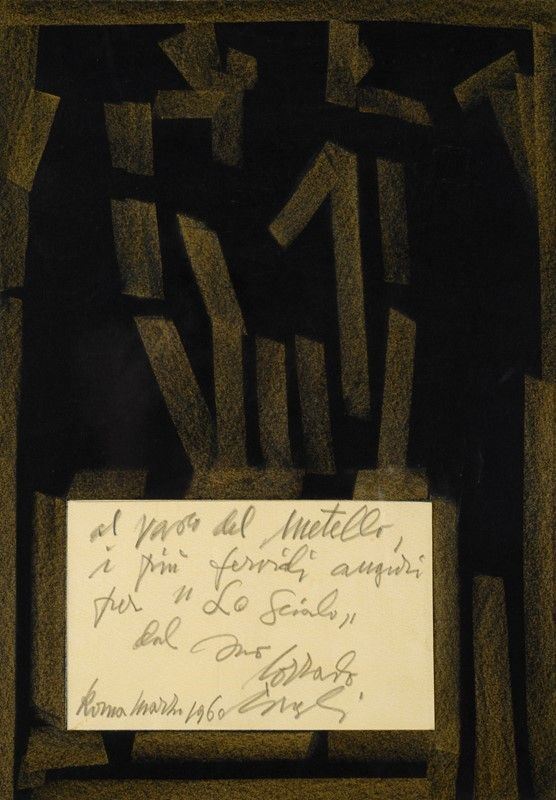 al del Metello,
i più fervidi auguri
per "Lo Scialo„
dal suo
Corrado
Roma marzo 1960 Cagli